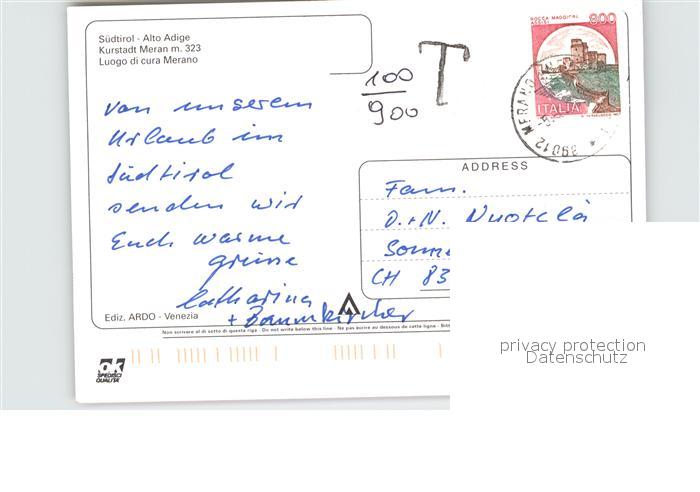 Südtirol - Alto Adige
Kurstadt Meran m. 323
Luogo di cura Merano
T
100
900
ROCCA MAGGIORE
ASSISI
800
ITALIA
39012 MERANO
von unserem
Urlaub im
Südtirol
senden wir
Euch warme
grüsse
Catharina
+ Baumkircher
ADDRESS
Fam.
O. + N. Nuotclà
Somme
CH 83
Ediz. ARDO - Venezia
Non scrivere al di sotto di questa riga - Do not write below this line - Ne pas écrire au dessous de cette ligne - Bitt
ok
SPEDISCI
QUALITÀ
privacy protection
Datenschutz